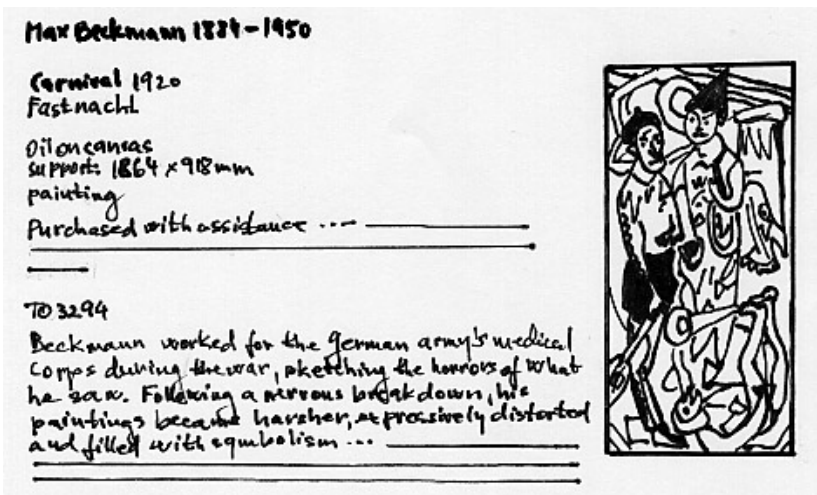 Max Beckmann 1884-1950
Carnival 1920
Fastnacht
Oil on canvas
support: 1864 x 918 mm
painting
Purchased with assistance ...
TO3294
Beckmann worked for the German army's medical
corps during the war, sketching the horrors of what
he saw. Following a nervous breakdown, his
paintings became harsher, expressively distorted
and filled with symbolism ...